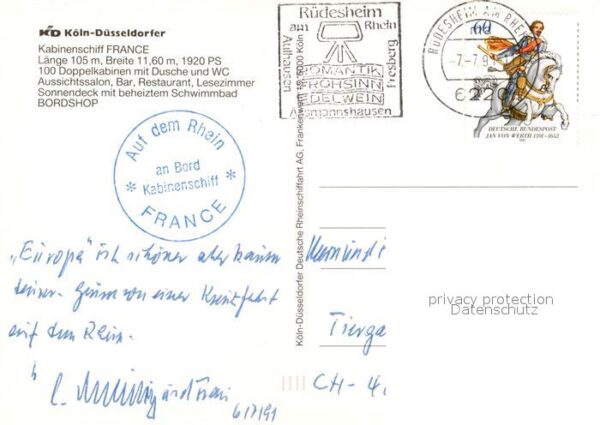 KD Köln-Düsseldorfer
Kabinenschiff FRANCE
Länge 105 m, Breite 11,60 m, 1920 PS
100 Doppelkabinen mit Dusche und WC
Aussichtssalon, Bar, Restaurant, Lesezimmer
Sonnendeck mit beheiztem Schwimmbad
BORDSHOP
Auf dem Rhein
* an Bord *
Kabinenschiff
FRANCE
„Europa" ist schöner aber kaum
von einer
auf dem Rhein.
und Frau
6/7/91
Köln-Düsseldorfer Deutsche Rheinschiffahrt AG, Frankenwerft 15, 5000 Köln 1
Rüdesheim
am Rhein
Aulhausen
Presberg
ROMANTIK
FROHSINN
EDELWEIN
Assmannshausen
RÜDESHEIM AM RHEIN
-7.-7.9
6220
60
DEUTSCHE BUNDESPOST
JAN VON WERTH 1591-1652
privacy protection
Datenschutz
Tierga
CH-4